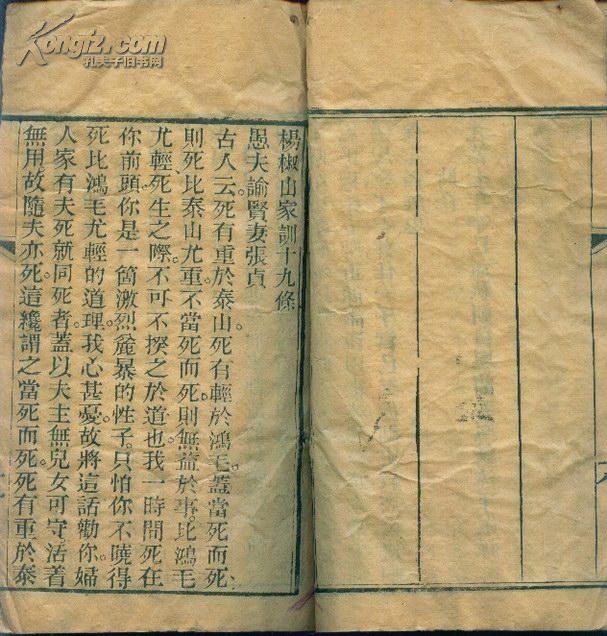 Kongfz.com
孔夫子旧书网
楊椒山家訓十九條
愚夫諭賢妻張貞
古人云。死有重於泰山。死有輕於鴻毛。蓋當死而死、
則死比泰山尤重。不當死而死。則無益於事。比鴻毛
尤輕、死生之際。不可不揆之於道也。我一時間死在
你前頭。你是一箇激烈麄暴的性子。只怕你不曉得
死比鴻毛尤輕的道理。我心甚憂。故將這話勸你。婦
人家有夫死就同死者。蓋以夫主無兒女可守。活着
無用。故隨夫亦死。這纔謂之當死而死。死有重於泰